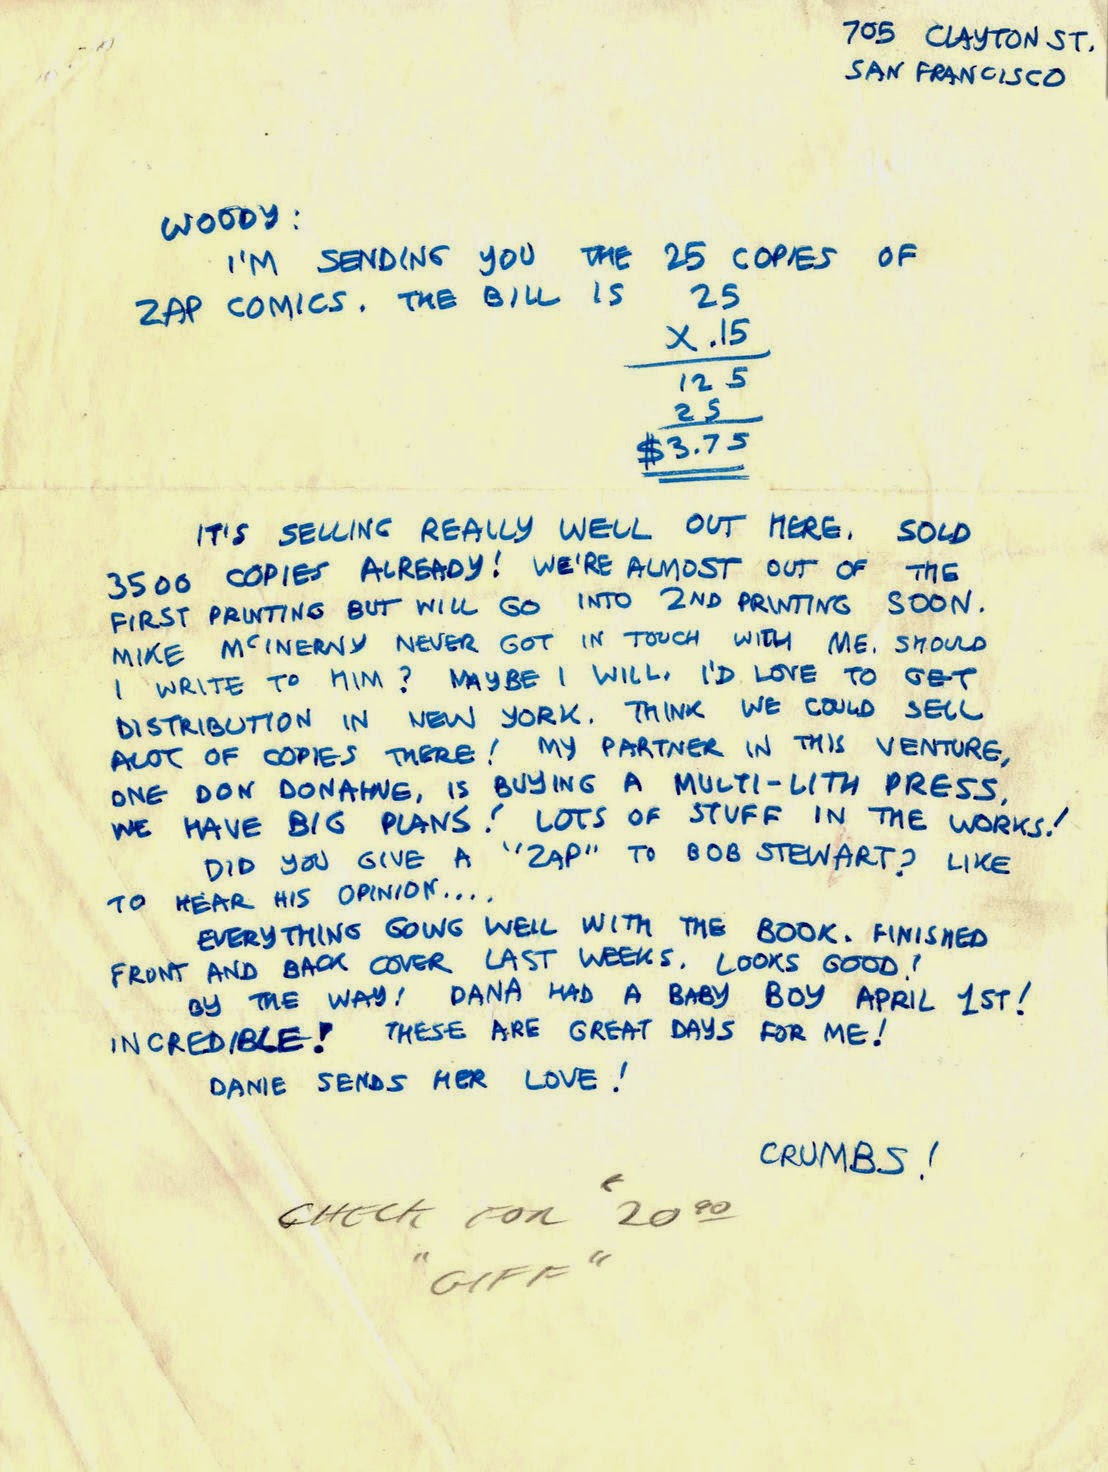 705 CLAYTON ST.
SAN FRANCISCO
WOODY:
I'M SENDING YOU THE 25 COPIES OF
ZAP COMICS. THE BILL IS 25
X .15
125
25
$3.75
IT'S SELLING REALLY WELL OUT HERE. SOLD
3500 COPIES ALREADY! WE'RE ALMOST OUT OF THE
FIRST PRINTING BUT WILL GO INTO 2ND PRINTING SOON.
MIKE McINERNY NEVER GOT IN TOUCH WITH ME. SHOULD
I WRITE TO HIM? MAYBE I WILL. I'D LOVE TO GET
DISTRIBUTION IN NEW YORK. THINK WE COULD SELL
ALOT OF COPIES THERE! MY PARTNER IN THIS VENTURE,
ONE DON DONAHUE, IS BUYING A MULTI-LITH PRESS,
WE HAVE BIG PLANS! LOTS OF STUFF IN THE WORKS!
DID YOU GIVE A "ZAP" TO BOB STEWART? LIKE
TO HEAR HIS OPINION....
EVERYTHING GOING WELL WITH THE BOOK. FINISHED
FRONT AND BACK COVER LAST WEEKS. LOOKS GOOD!
BY THE WAY! DANA HAD A BABY BOY APRIL 1ST!
INCREDIBLE! THESE ARE GREAT DAYS FOR ME!
DANIE SENDS HER LOVE!
CRUMBS!
CHECK FOR "20
"GIFF"